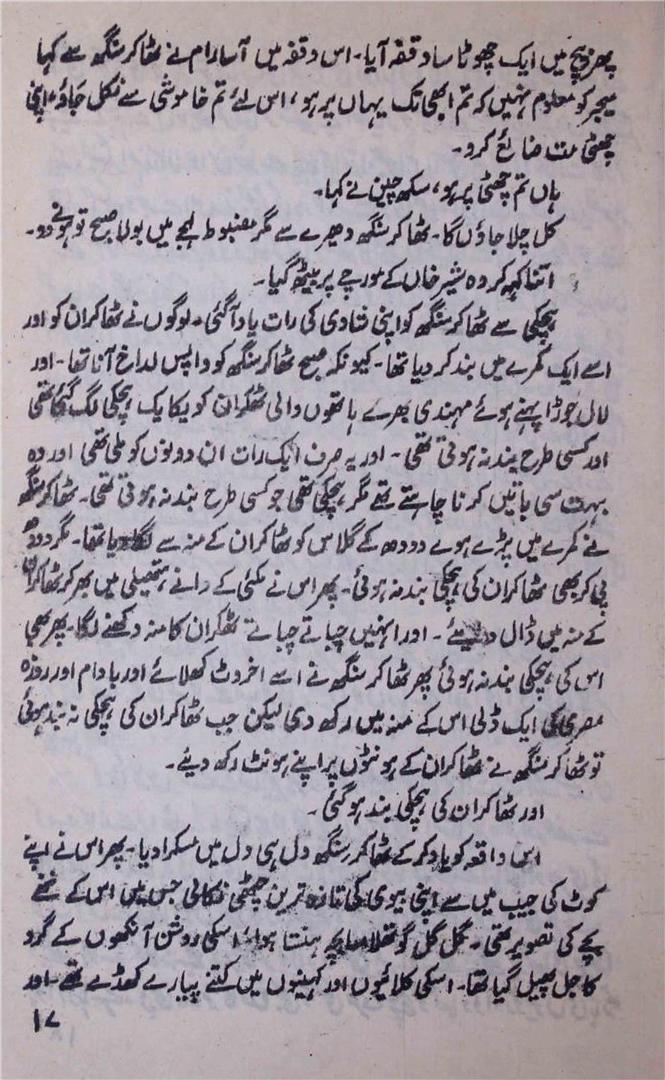 پھر بیچ میں ایک چھوٹا سا وقفہ آیا۔ اس وقفہ میں آسارام نے ٹھاکر سنگھ سے کہا
میجر کو معلوم نہیں کہ تم ابھی تک یہاں پر ہو، اس لئے تم خاموشی سے نکل جاؤ، اپنی
چھٹی مت ضائع کرو۔
ہاں تم چھٹی پر ہو، سکھ چین نے کہا۔
کل چلا جاؤں گا۔ ٹھاکر سنگھ دھیرے سے مگر مضبوط لہجے میں بولا صبح تو ہونے دو۔
اتنا کہہ کر وہ شیر خاں کے مورچے پر بیٹھ گیا۔
ہچکی سے ٹھاکر سنگھ کو اپنی شادی کی رات یاد آگئی۔ لوگوں نے ٹھاکران کو اور
اسے ایک کمرے میں بند کر دیا تھا۔ کیونکہ صبح ٹھاکر سنگھ کو واپس لداخ آنا تھا۔ اور
لال جوڑا پہنے ہوئے مہندی بھرے ہاتھوں والی ٹھکران کو یکایک ہچکی لگ گئی تھی
اور کسی طرح بند نہ ہوتی تھی۔ اور یہ صرف ایک رات ان دونوں کو ملی تھی اور وہ
بہت سی باتیں کرنا چاہتے تھے مگر ہچکی تھی جو کسی طرح بند نہ ہوتی تھی۔ ٹھاکر سنگھ
نے کمرے میں پڑے ہوے دودھ کے گلاس کو ٹھاکران کے منہ سے لگا دیا تھا۔ مگر دودھ
پی کر بھی ٹھاکران کی ہچکی بند نہ ہوئی۔ پھر اس نے مکئی کے دانے، ہتھیلی میں بھر کر ٹھاکران
کے منہ میں ڈال دیئے۔ اور انہیں چباتے چباتے ٹھکران کا منہ دکھنے لگا۔ پھر بھی
اس کی ہچکی بند نہ ہوئی پھر ٹھاکر سنگھ نے اسے اخروٹ کھلائے اور بادام اور روزہ
مصری کی ایک ڈلی اس کے منہ میں رکھ دی لیکن جب ٹھاکران کی ہچکی نہ بند ہوئی
تو ٹھاکر سنگھ نے ٹھاکران کے ہونٹوں پر اپنے ہونٹ رکھ دیئے۔
اور ٹھاکران کی ہچکی بند ہو گئی۔
اس واقعہ کو یاد کر کے ٹھاکر سنگھ دل ہی دل میں مسکرا دیا۔ پھر اس نے اپنے
کوٹ کی جیب میں سے اپنی بیوی کی تازہ ترین چھٹی نکالی جس میں اس کے ننھے
بچے کی تصویر تھی۔ گل گل گوتھلا سا بچہ ہنستا ہوا، اسکی روشن آنکھوں کے گرد
کاجل پھیل گیا تھا۔ اسکی کلائیوں اور کہنیوں میں کتنے پیارے کھڈے تھے۔ اور
۱۷